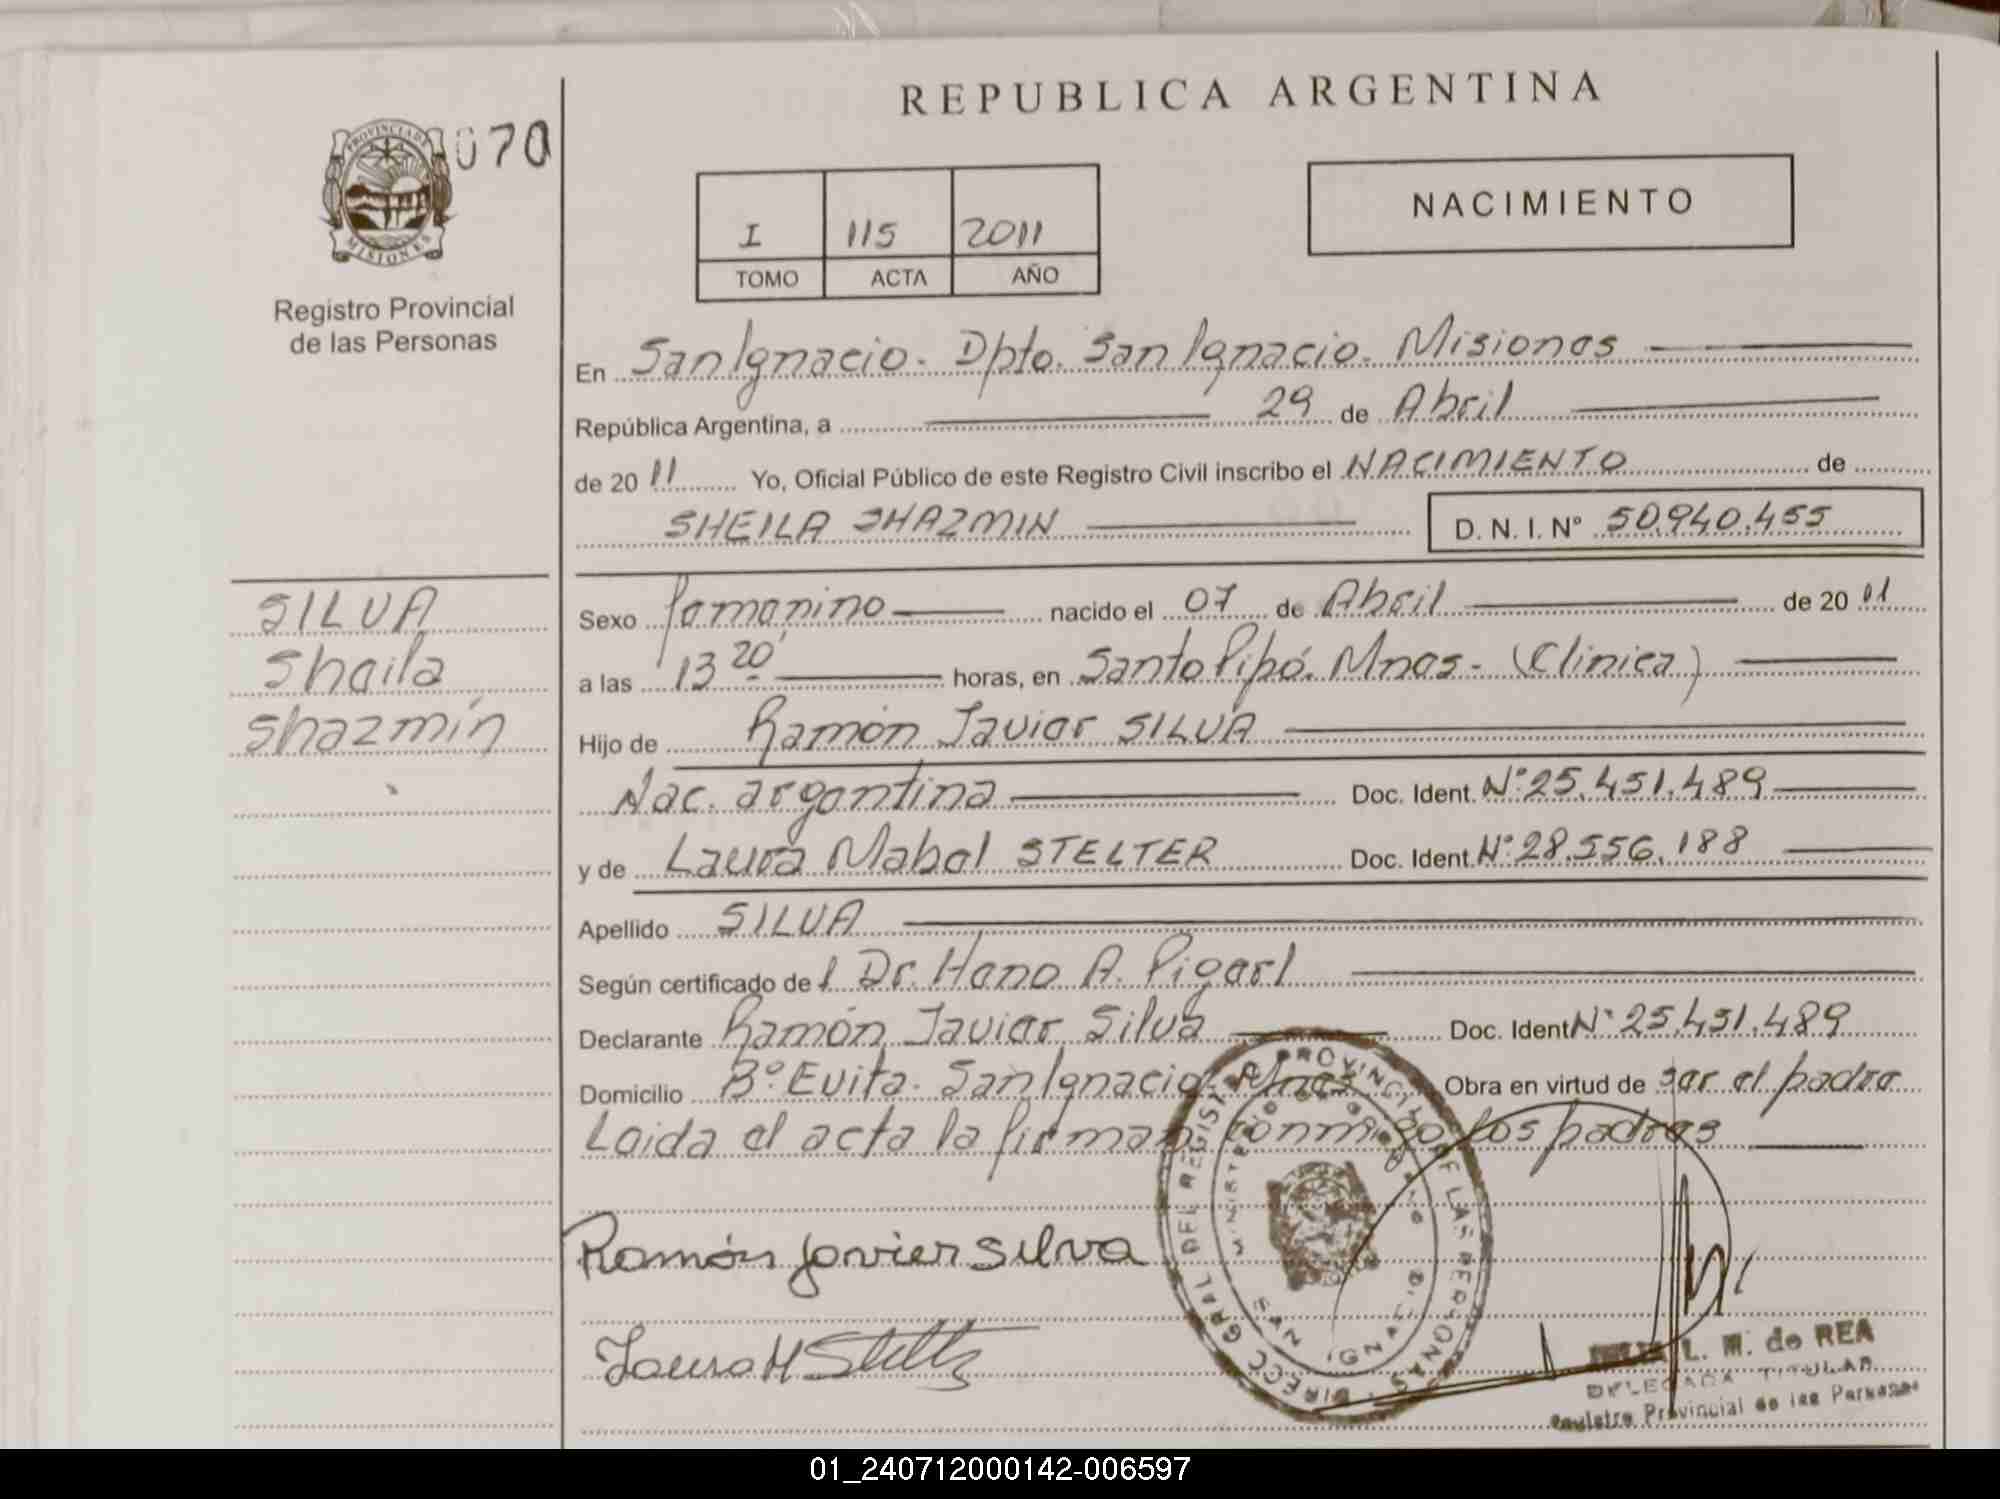 REPUBLICA ARGENTINA
PROVINCIA DE
MISIONES
070
Registro Provincial
de las Personas
I 115 2011
TOMO ACTA AÑO
NACIMIENTO
En San Ignacio. Dpto. San Ignacio. Misiones
República Argentina, a 29 de Abril
de 20 11 Yo, Oficial Público de este Registro Civil inscribo el NACIMIENTO de
SHEILA SHAZMIN D. N. I. Nº 50.940.455
SILVA
Sheila
Shazmín
Sexo femenino nacido el 07 de Abril de 20 11
a las 13 20' horas, en Santo Pipó. Mnes- (Clinica)
Hijo de Ramón Javier SILVA
Nac. argentina Doc. Ident. Nº 25.451.489
y de Laura Mabel STELTER Doc. Ident. Nº 28.556.188
Apellido SILVA
Según certificado de l Dr. Hano A. Pigerl
Declarante Ramón Javier Silva Doc. Ident Nº 25.451.489
Domicilio Bº Evita. San Ignacio. Mnes Obra en virtud de ser el padre
Leida el acta la firman conmigo los padres
Ramón Javier Silva
Laura M Stelter
DIRECC GRAL DEL REGISTRO PROVINCIAL DE LAS PERSONAS
MINISTERIO DE GOBIERNO
SAN IGNACIO
L. M. de REA
DELEGADA TITULAR
Registro Provincial de las Personas
01_240712000142-006597